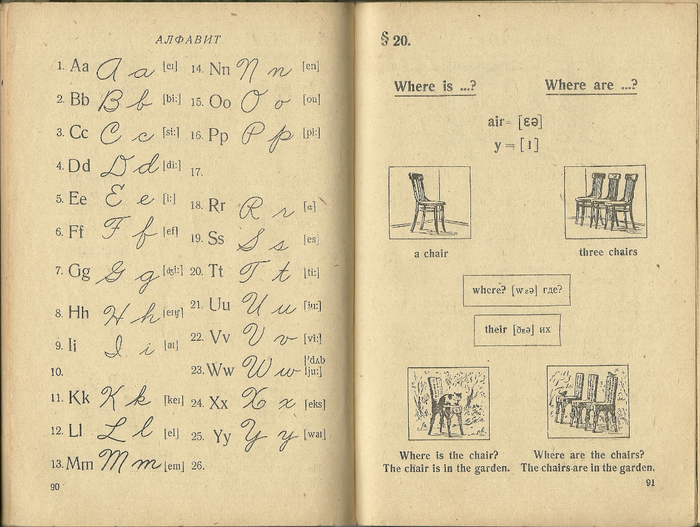 АЛФАВИТ
1. Aa A a [eɪ]
2. Bb B b [bi:]
3. Cc C c [si:]
4. Dd D d [di:]
5. Ee E e [i:]
6. Ff F f [ef]
7. Gg G g [dʒi:]
8. Hh H h [eɪtʃ]
9. Ii I i [aɪ]
10.
11. Kk K k [keɪ]
12. Ll L l [el]
13. Mm M m [em]
14. Nn N n [en]
15. Oo O o [ou]
16. Pp P p [pi:]
17.
18. Rr R r [ɑ]
19. Ss S s [es]
20. Tt T t [ti:]
21. Uu U u [ju:]
22. Vv V v [vi:]
23. Ww W w ['dʌb
ju:]
24. Xx X x [eks]
25. Yy Y y [waɪ]
26.
90
§ 20.
Where is ...?
Where are ...?
air = [ɛə]
y = [ɪ]
a chair
three chairs
where? [wɛə] где?
their [ðɛə] их
Where is the chair?
The chair is in the garden.
Where are the chairs?
The chairs are in the garden.
91